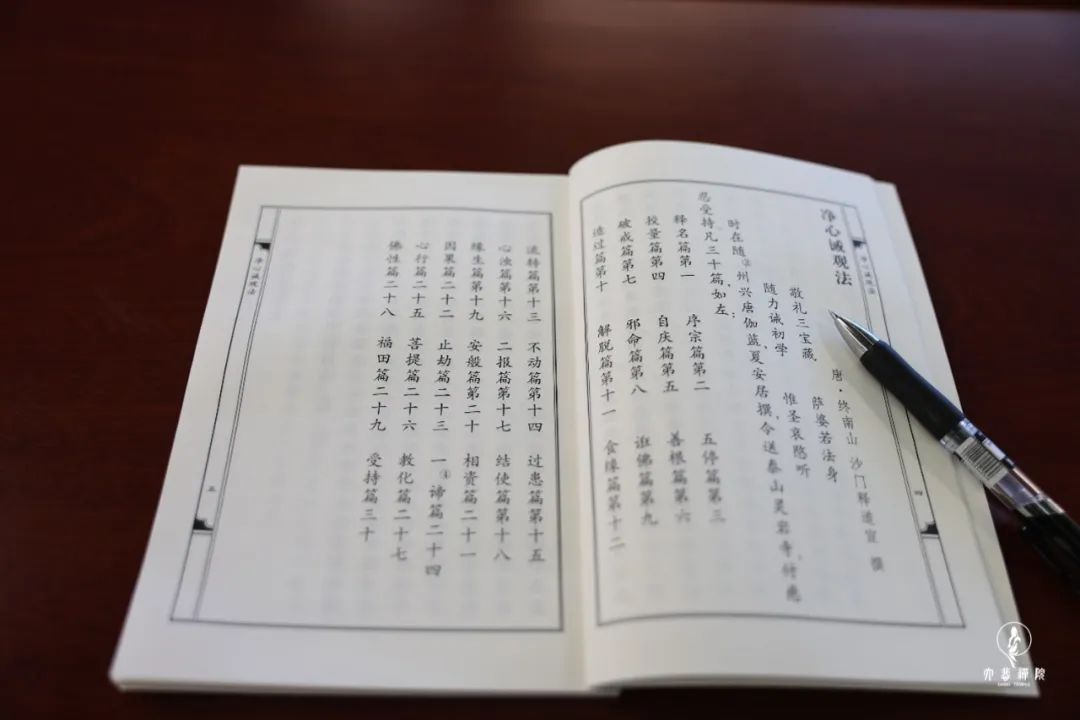 净心诫观法
四
净心诫观法
唐·终南山 沙门释道宣 撰
敬礼三宝藏 萨婆若法身
随力诫初学 惟圣哀愍听
时在随②州兴唐伽蓝,夏安居撰,今送泰山灵岩寺,付慈
忍受持,凡三十篇,如左:
释名篇第一 序宗篇第二 五停篇第三
挍量篇第四 自庆篇第五 善根篇第六
破戒篇第七 邪命篇第八 诳佛篇第九
造过篇第十 解脱篇第十一 食缘篇第十二
流转篇第十三 不动篇第十四 过患篇第十五
心浊篇第十六 二报篇第十七 结使篇第十八
缘生篇第十九 安般篇第二十 相资篇二十一
因果篇二十二 止劫篇二十三 一④谛篇二十四
心行篇二十五 菩提篇二十六 教化篇二十七
佛性篇二十八 福田篇二十九 受持篇三十
净心诫观法
五
大悲禪院